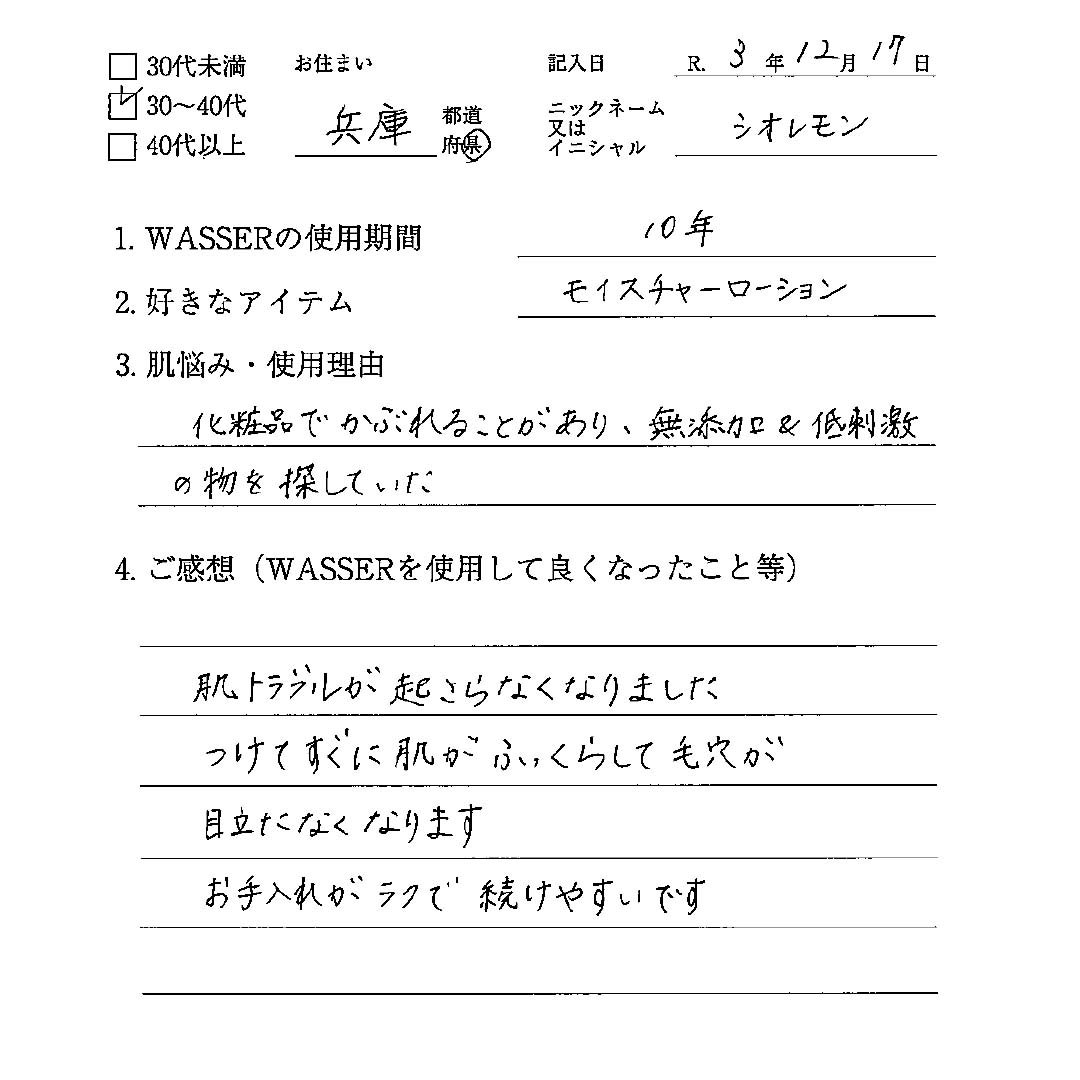 □ 30代未満
☑ 30～40代
□ 40代以上
お住まい
兵庫 都道府県
記入日 R. 3年12月17日
ニックネーム又はイニシャル シオレモン
1. WASSERの使用期間 10年
2. 好きなアイテム モイスチャーローション
3. 肌悩み・使用理由
化粧品でかぶれることがあり、無添加&低刺激
の物を探していた
4. ご感想（WASSERを使用して良くなったこと等）
肌トラブルが起きらなくなりました
つけてすぐに肌がふっくらして毛穴が
目立たなくなります
お手入れがラクで続けやすいです